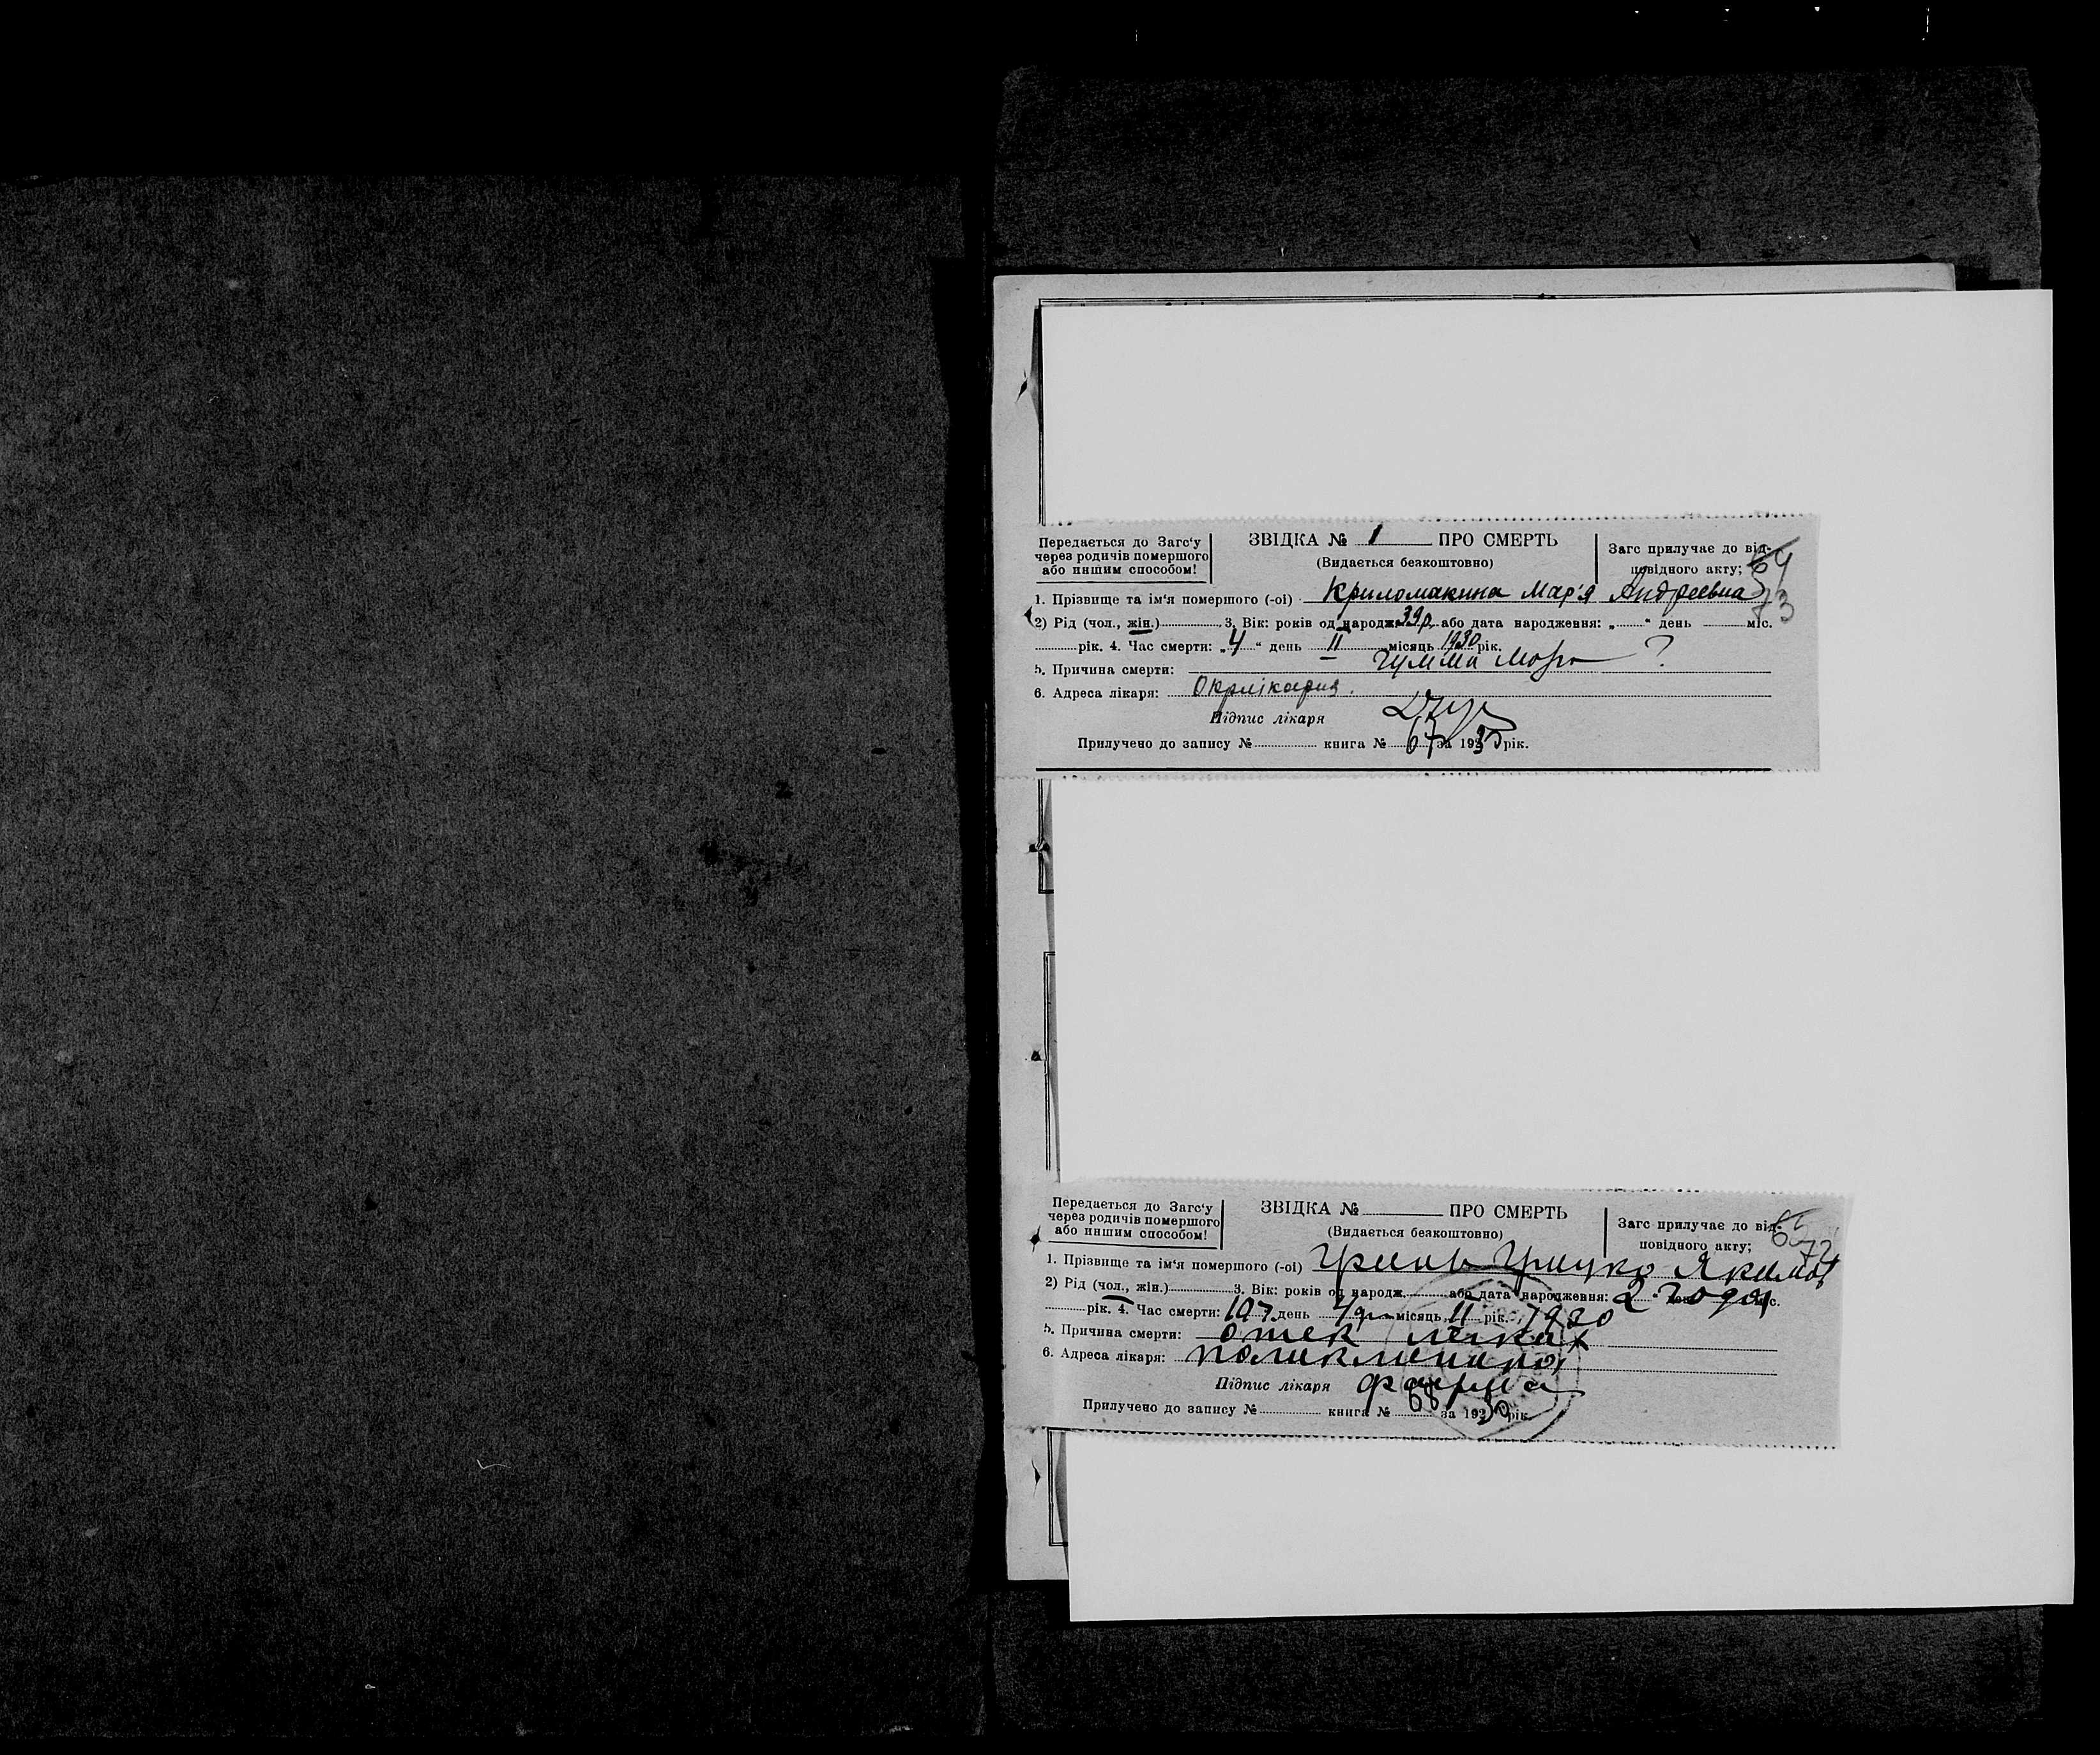 Передається до Загс'у
через родичів помершого
або иншим способом!
ЗВІДКА № 1 ПРО СМЕРТЬ
(Видається безкоштовно)
Загс прилучає до від-
повідного акту;
64
73
1. Прізвище та ім'я помершого (-ої) Криломакина Мар'я Андреевна
2) Рід (чол., жін.) 3. Вік: років од народж. 39 р. або дата народження: „ “ день міс.
рік. 4. Час смерти: „4“ день II місяць 1930 рік.
5. Причина смерти: гумма ?
6. Адреса лікаря: Окрлікарня.
Підпис лікаря
Прилучено до запису № книга № 67 за 1930 рік.
Передається до Загс'у
через родичів помершого
або иншим способом!
ЗВІДКА № ПРО СМЕРТЬ
(Видається безкоштовно)
Загс прилучає до від-
повідного акту;
65
72
1. Прізвище та ім'я помершого (-ої) Гринь Грицко Якимов
2) Рід (чол., жін.) 3. Вік: років од народж. або дата народження: 2 года міс.
рік. 4. Час смерти: 10 день місяць II рік. 1930
5. Причина смерти: отек легких
6. Адреса лікаря: поликлиника
Підпис лікаря
Прилучено до запису № книга № 68 за 1930 рік.